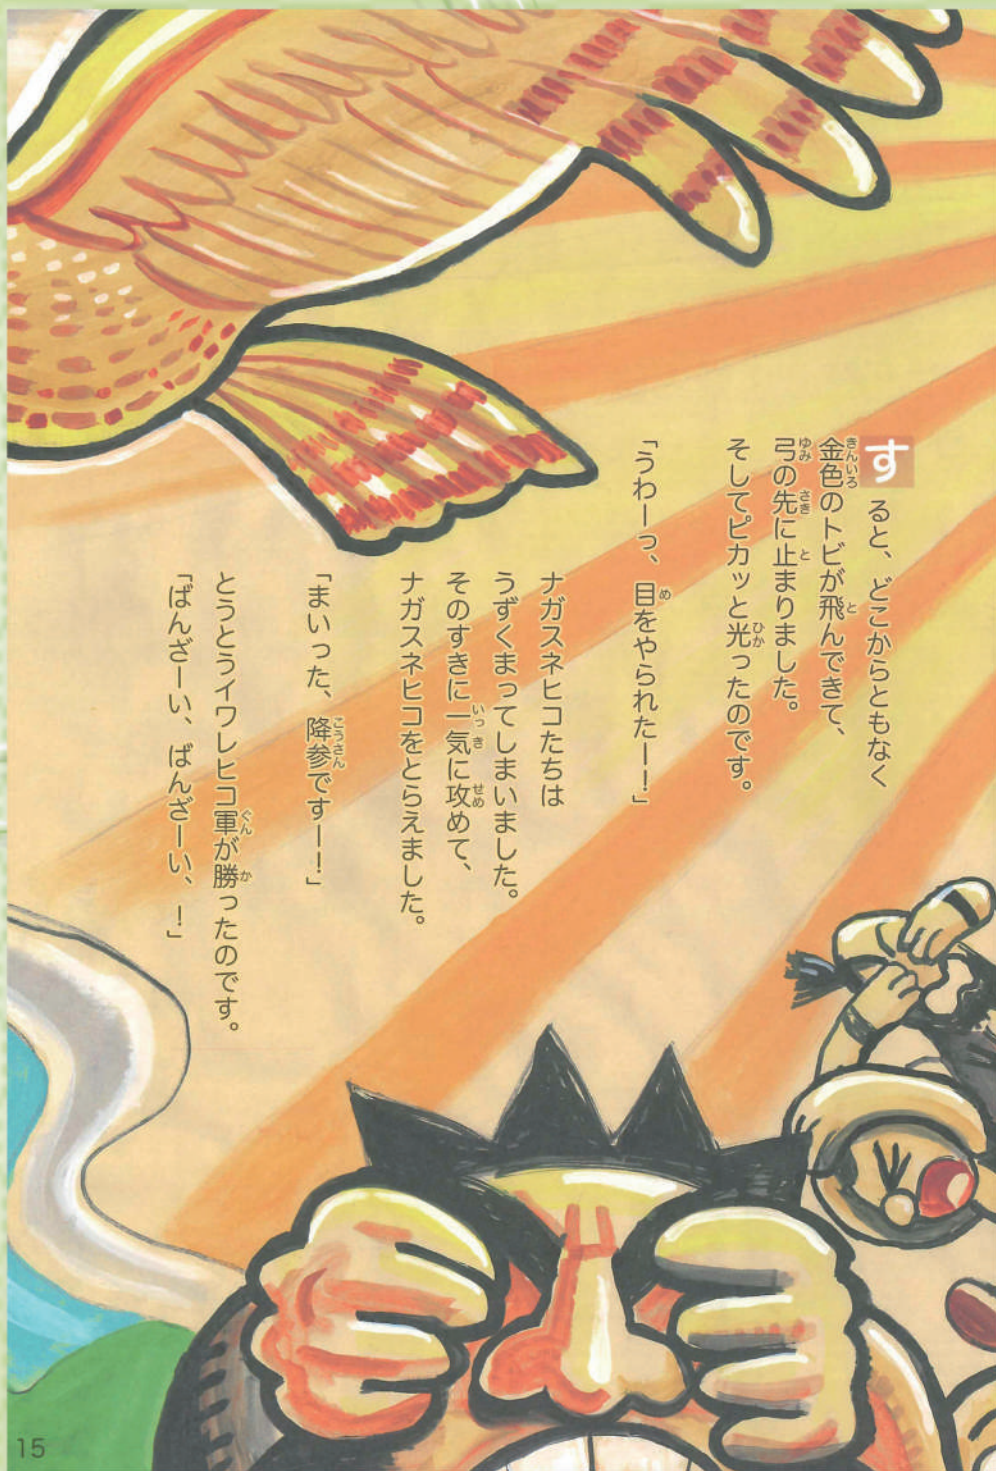 すると、どこからともなく
金色のトビが飛んできて、
弓の先に止まりました。
そしてピカッと光ったのです。
「うわーっ、目をやられたー！」
ナガスネヒコたちは
うずくまってしまいました。
そのすきに一気に攻めて、
ナガスネヒコをとらえました。
「まいった、降参ですー！」
とうとうイワレヒコ軍が勝ったのです。
「ばんざーい、ばんざーい、！」
15